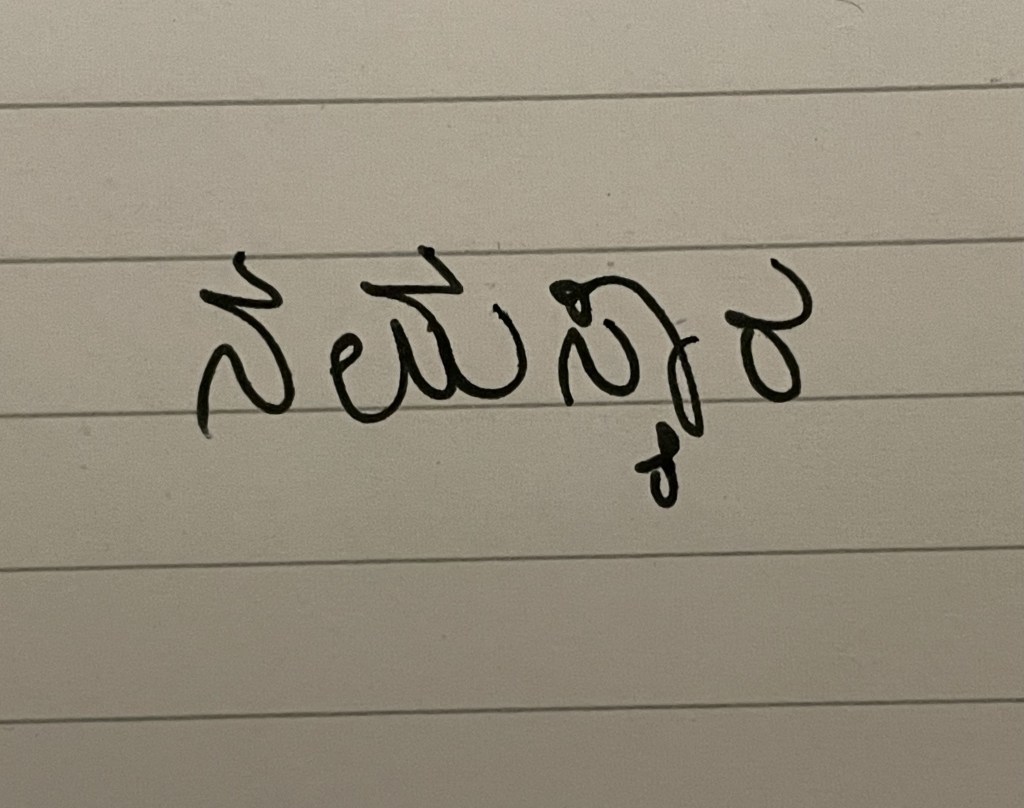 ನಮಸ್ಕಾರ